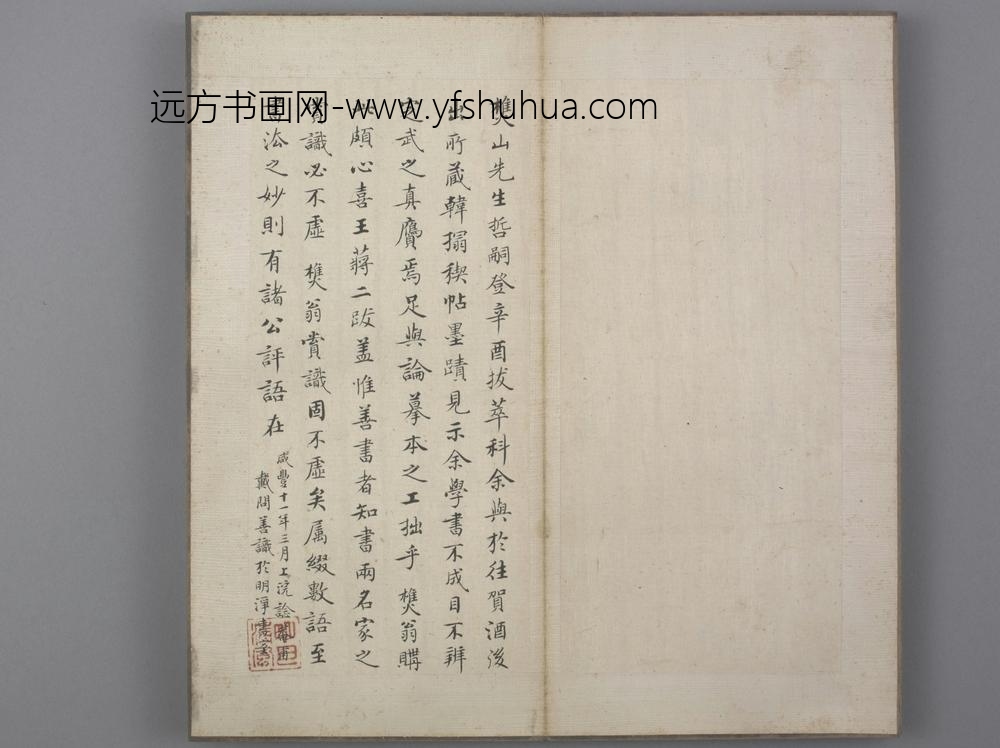 远方书画网-www.yfshuhua.com
樵山先生哲嗣登辛酉拔萃科余與於往賀酒後
出所藏韓搨稧帖墨蹟見示余學書不成目不辨
定武之真贗焉足與論摹本之工拙乎 樵翁購
此頗心喜王蔣二跋蓋惟善書者知書兩名家之
賞識必不虛 樵翁賞識固不虛矣属綴數語至
書法之妙則有諸公評語在
咸豐十一年三月上浣諗
戴問善識於明淨書室